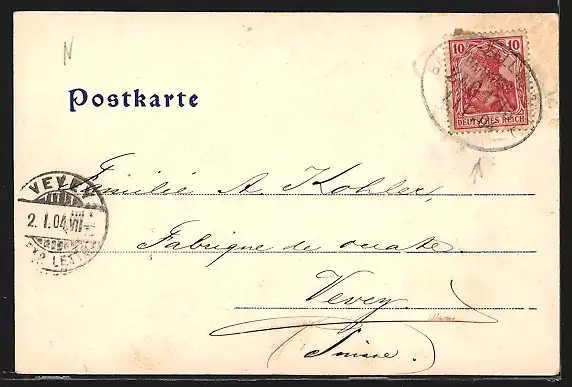 Postkarte
10 10
DEUTSCHES REICH
VEVEY
2. I. 04. VII
EXP. LETTR.
Familie A. Kohler,
Fabrique de ouate.
Vevey.
(Suisse.)